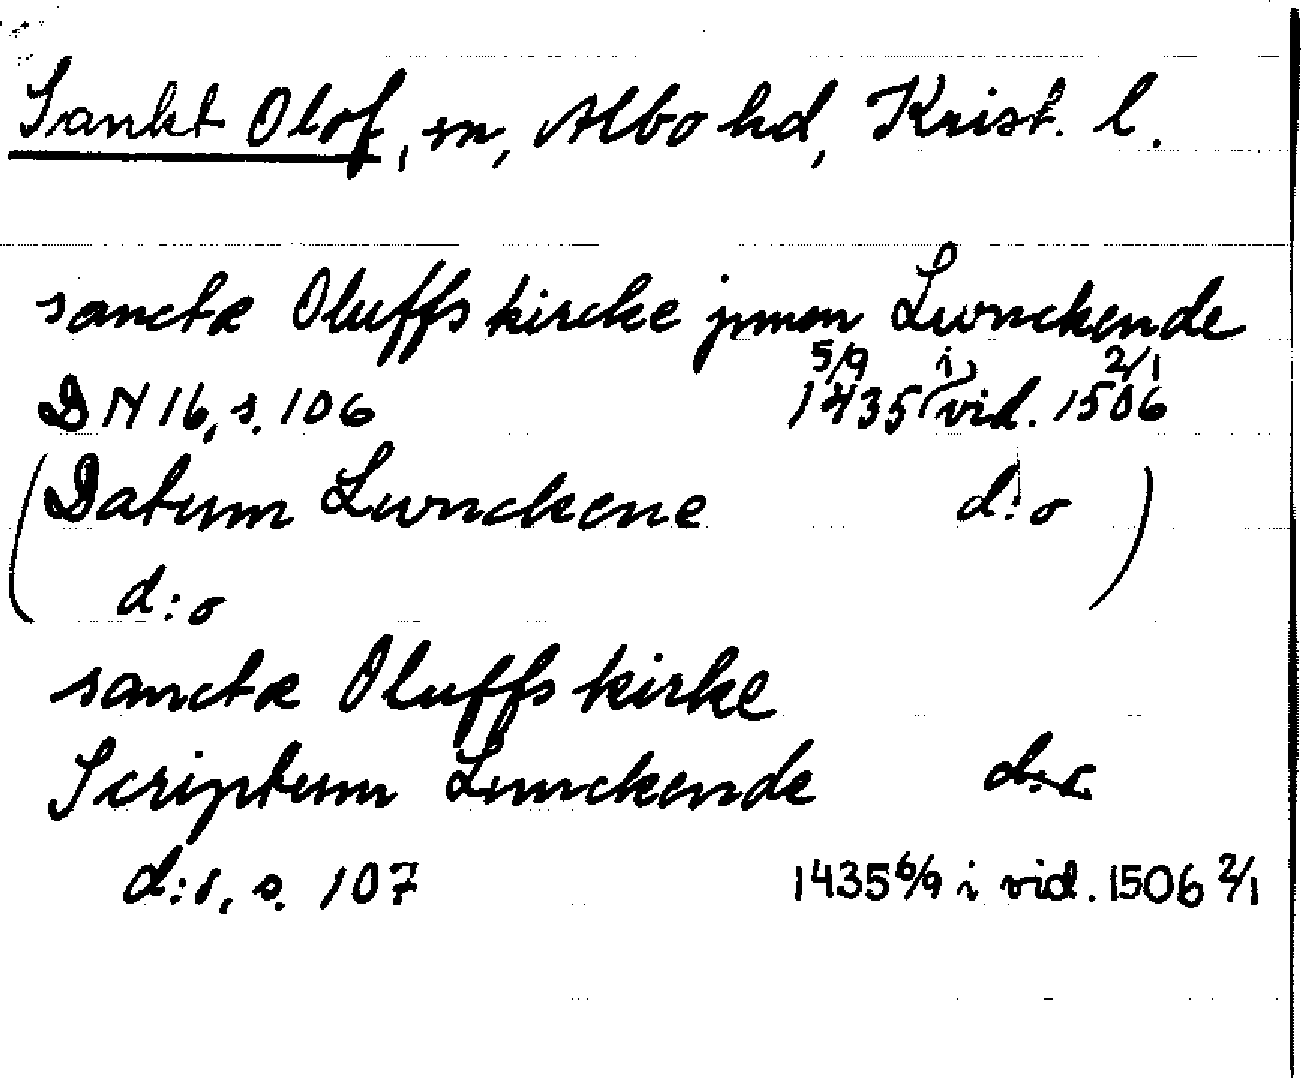 Sankt Olof, sn, Albo hd, Krist. l.
sanctæ Oluffs kircke jnnen Lwnckende
DN 16, s. 106 1435 5/9 i vid. 1506 2/1
(Datum Lwnckene d:o)
d:o
sanctæ Oluffs kirke
Scriptum Lunckende d:o
d:o, s. 107 1435 6/9 i vid. 1506 2/1